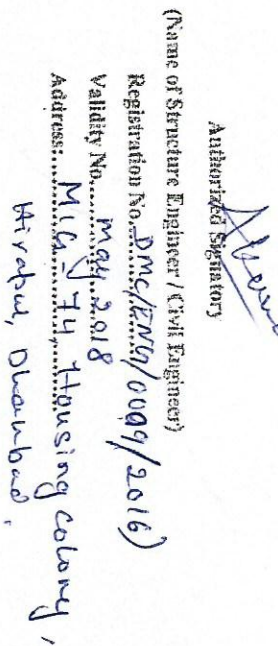 Authorized Signatory
(Name of Structure Engineer / Civil Engineer)
Registration No. DMC/ENG/0009/2016)
Validity No. May 2018
Address: MIG-74, Housing Colony,
Hirapur, Dhanbad.